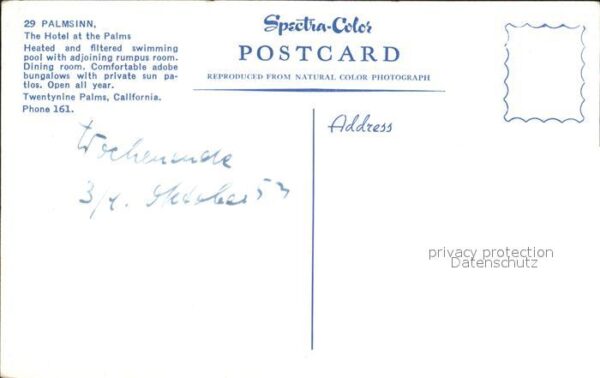 29 PALMSINN,
The Hotel at the Palms
Heated and filtered swimming
pool with adjoining rumpus room.
Dining room. Comfortable adobe
bungalows with private sun pa-
tios. Open all year.
Twentynine Palms, California.
Phone 161.
Spectra-Color
POSTCARD
REPRODUCED FROM NATURAL COLOR PHOTOGRAPH
Address
Wochenende
3/4. Oktober 53
privacy protection
Datenschutz